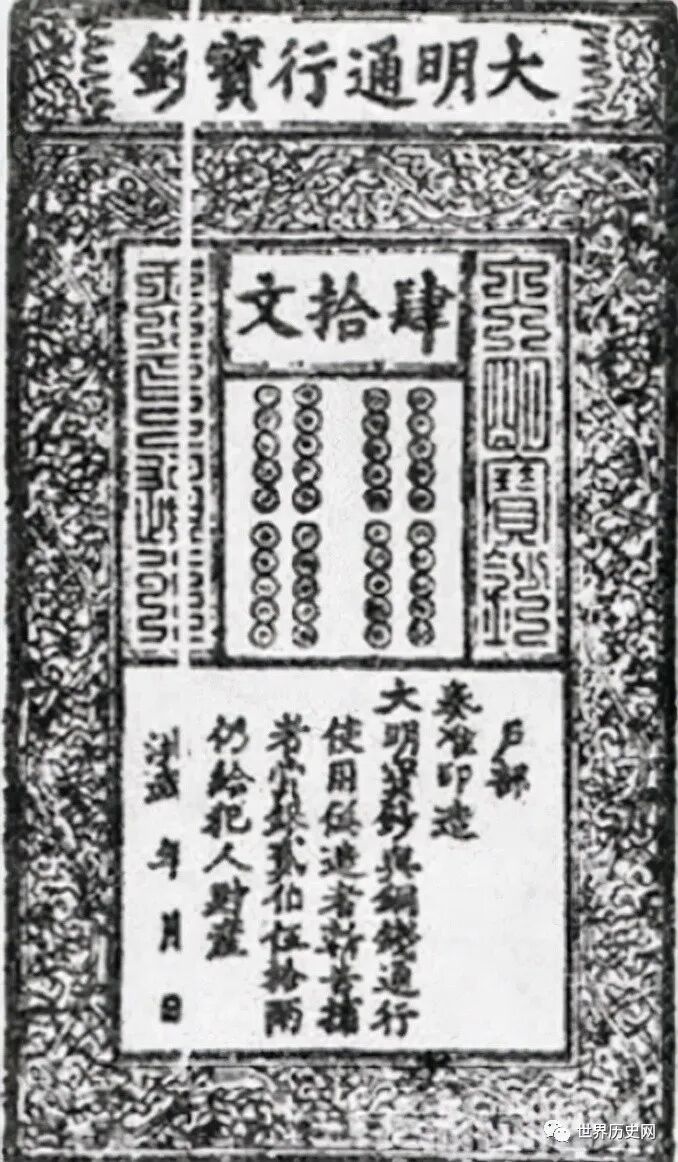 大明通行寶鈔
肆拾文
大明寶鈔
戶部
奏准印造
大明寶鈔與銅錢通行
使用偽造者斬告捕
者賞銀貳伯伍拾兩
仍給犯人財產
洪武 年 月 日
世界历史网